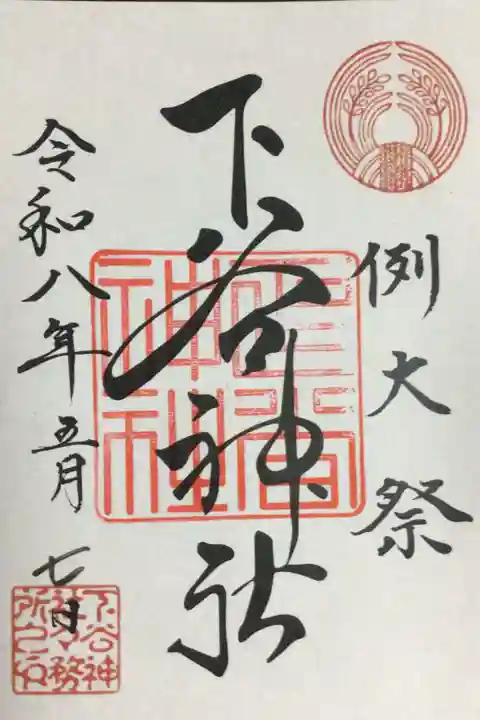 例大祭
下谷神社
令和八年五月七日
下谷神
社々務
所之印